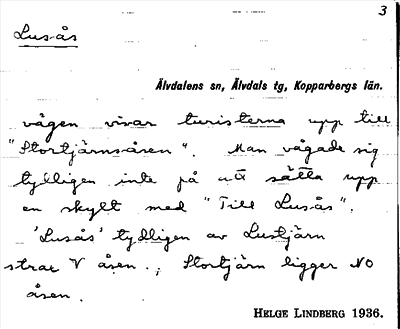 3
Lusås
Älvdalens sn, Älvdals tg, Kopparbergs län.
vägen visar turisterna upp till
"Stortjärnsåsen". Man vågade sig
tydligen inte på att sätta upp
en skylt med "Till Lusås".
'Lusås' tydligen av Lustjärn
strax V åsen.; Stortjärn ligger NO
åsen.
HELGE LINDBERG 1936.